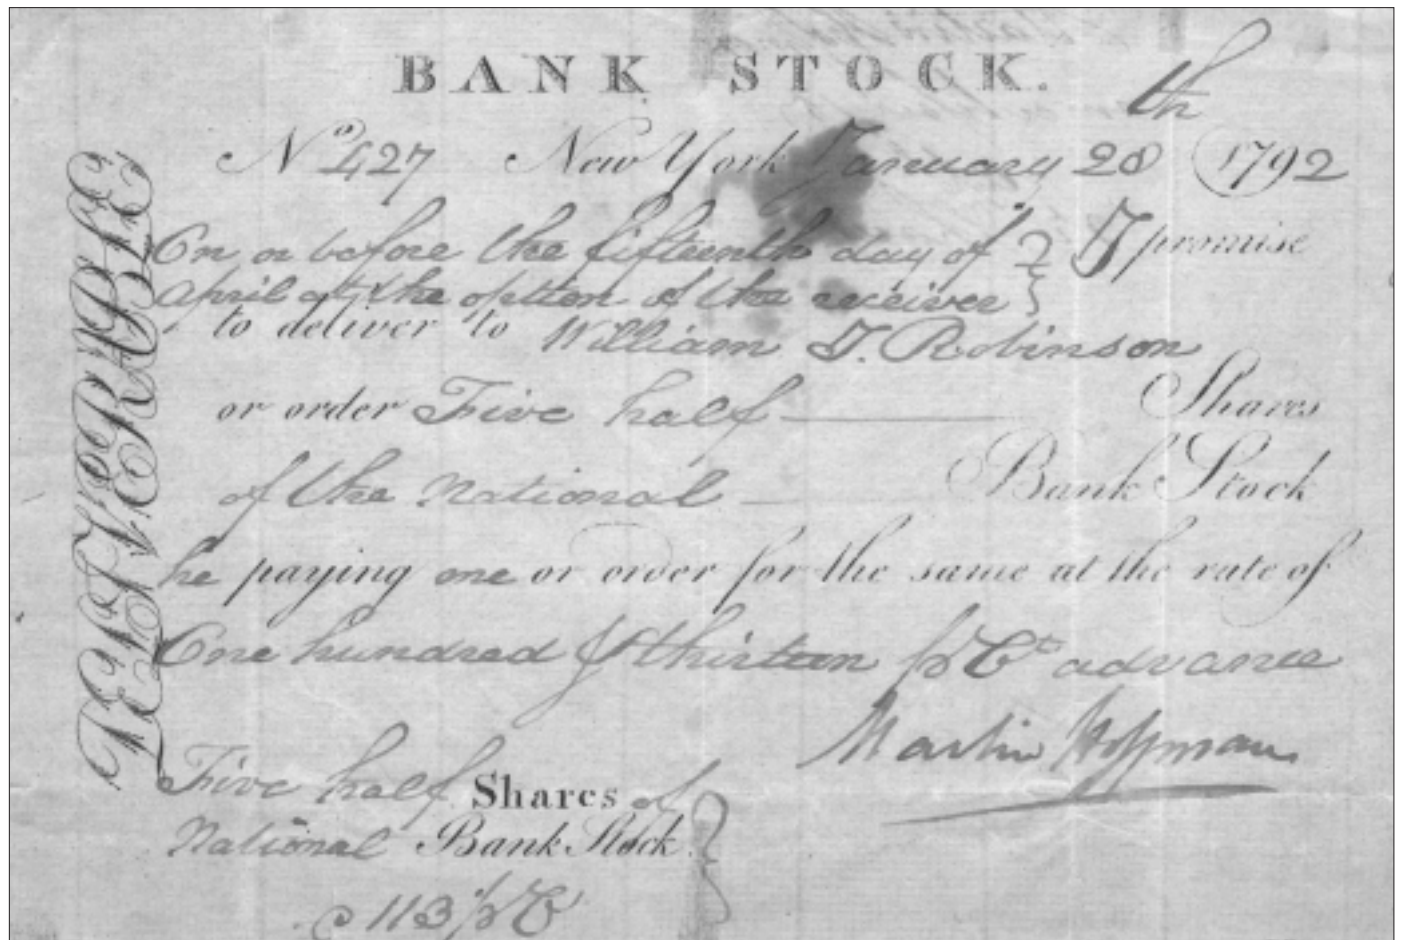 BANK STOCK.
th
No 427 New York January 28 1792
On or before the fifteenth day of } I promise
April at the option of the receiver }
to deliver to William T. Robinson
or order Five half Shares
of the National Bank Stock
he paying me or order for the same at the rate of
One hundred & thirteen pr Ct advance
Martin Hoffman
Five half Shares of
National Bank Stock
113 pr Ct
DELIVERABLE